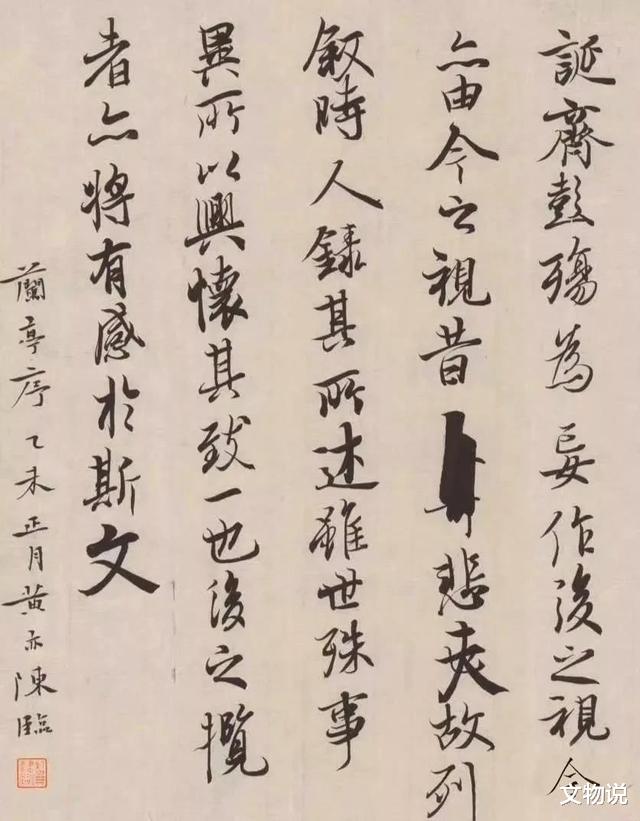 誕齊彭殤為妄作後之視今
亦由今之視昔悲夫故列
敘時人錄其所述雖世殊事
異所以興懷其致一也後之攬
者亦將有感於斯文
蘭亭序乙未正月黃亦陳臨
文物说